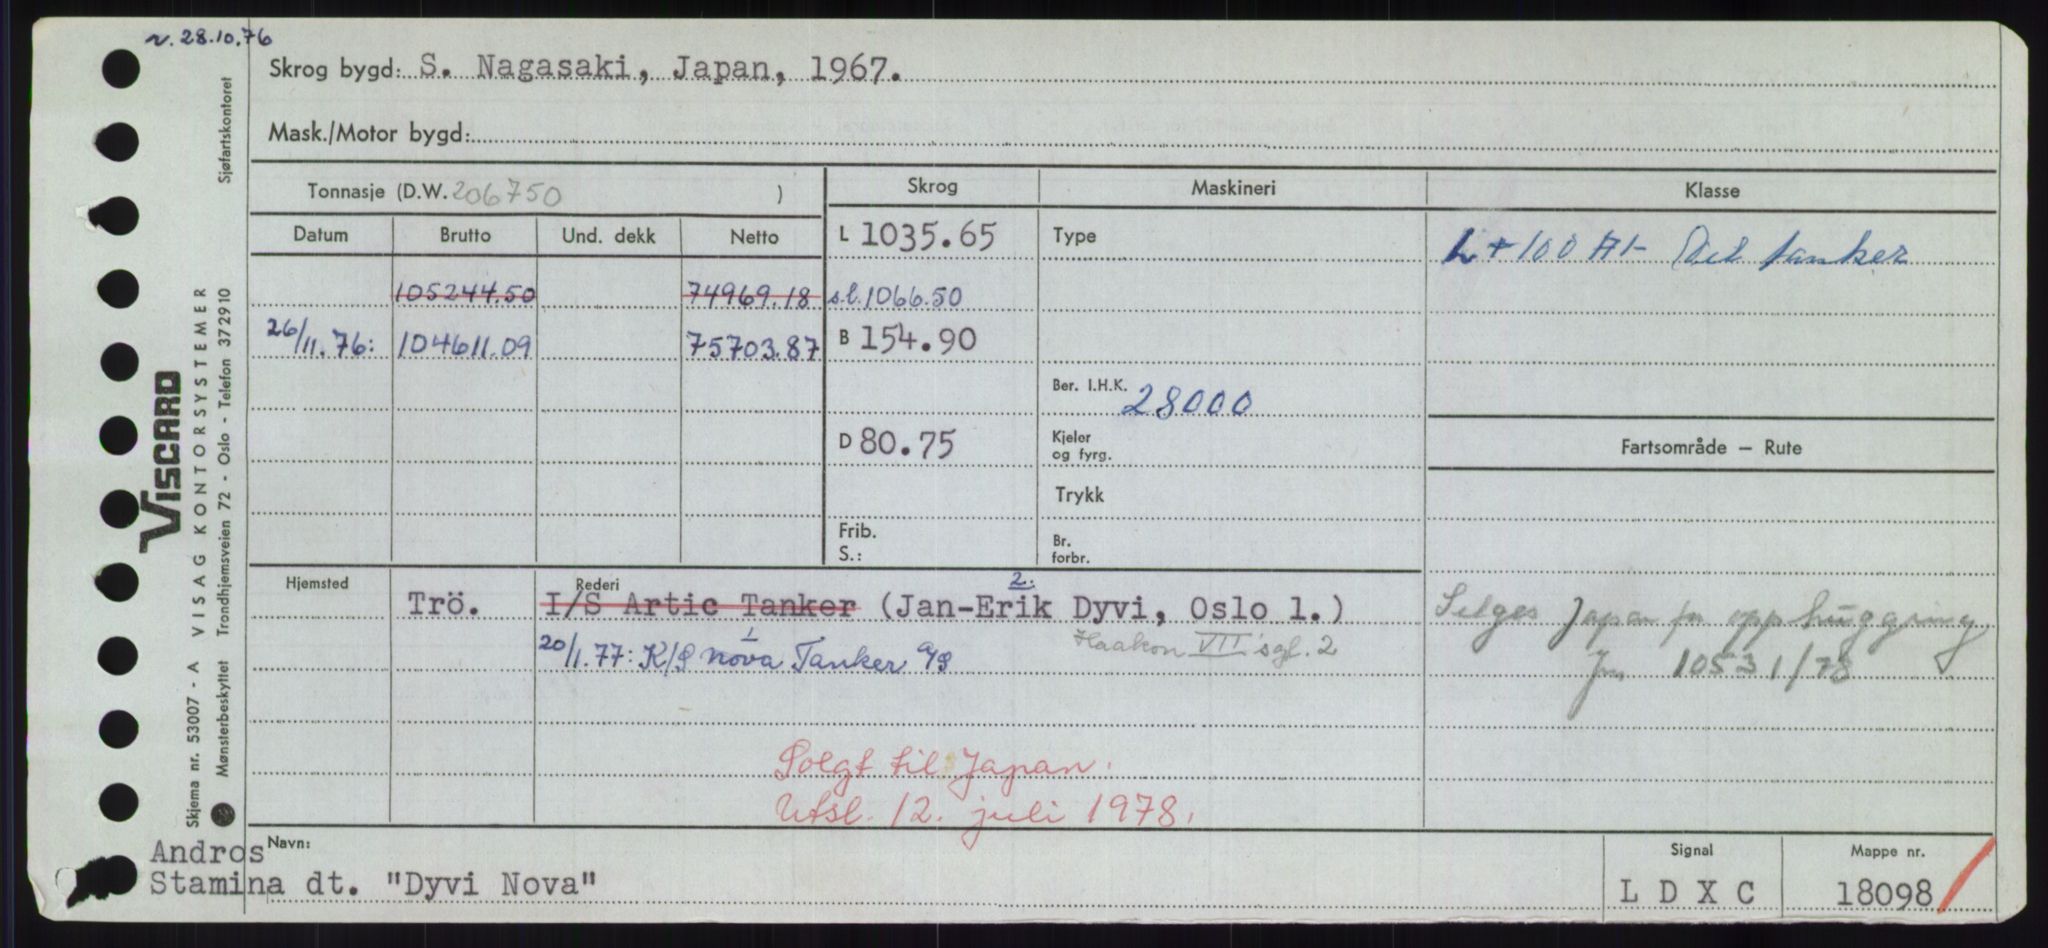 n. 28.10.76
Skrog bygd: S. Nagasaki, Japan, 1967.
Mask./Motor bygd:
Tonnasje (D.W. 206750 )
Skrog
Maskineri
Klasse
Datum
Brutto
Und. dekk
Netto
L 1035.65
Type
L + 100 A1 - Oil tanker
105244.50
74969.18
s.l. 1066.50
26/11.76:
104611.09
75703.87
B 154.90
Ber. I.H.K. 28000
D 80.75
Kjeler
og fyrg.
Fartsområde — Rute
Trykk
Frib.
S.:
Br.
forbr.
Hjemsted
Rederi
2.
Trö.
I/S Artic Tanker (Jan-Erik Dyvi, Oslo 1.)
20/1.77: K/S Nova Tanker A/S
1
Haakon VII'sgt. 2
Selges Japan for opphugging
Jnr 10531/78
Solgt til Japan.
Utsl. 12. juli 1978.
Andros
Navn:
Stamina dt. "Dyvi Nova"
Signal
L D X C
Mappe nr.
18098
VISCARD
Skjema nr. 53007 - A VISAG KONTORSYSTEMER
Mønsterbeskyttet Trondhjemsveien 72 - Oslo - Telefon 37 29 10 Sjøfartskontoret